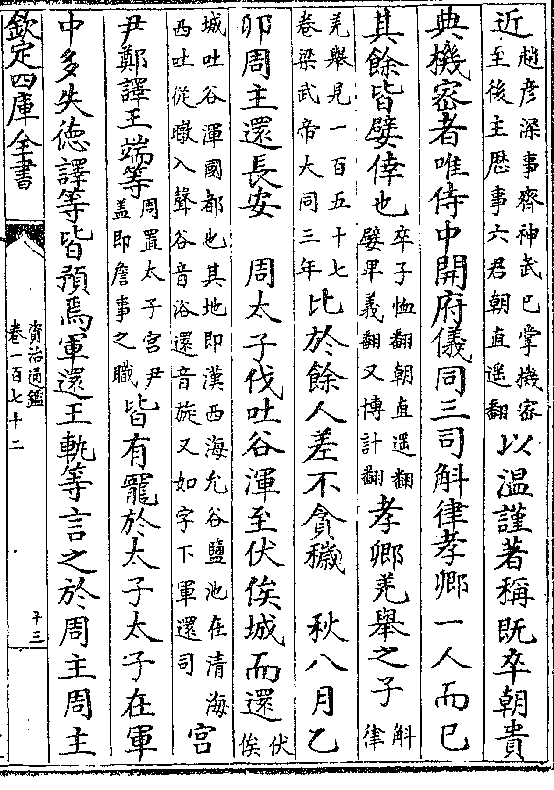 近趙彦深事齊神武巳掌機密至後主歴事六君朝直遥翻以温謹著稱既卒朝貴
典機密者唯侍中開府儀同三司斛律孝卿一人而巳
其餘皆嬖倖也卒子恤翻朝直遥翻嬖卑義翻又博計翻孝卿羌舉之子斛律
羌舉見一百五十七卷梁武帝大同三年比於餘人差不貪穢　秋八月乙
卯周主還長安　周太子伐吐谷渾至伏俟城而還伏俟
城吐谷渾國都也其地即漢西海允谷鹽池在清海西吐從暾入聲谷音浴還音旋又如字下軍還司宮
尹鄭譯王端等周置太子宮尹盖即詹事之職皆有寵於太子太子在軍
中多失徳譯等皆預焉軍還王軌等言之於周主周主
欽定四庫全書
資治通鑑
卷一百七十二